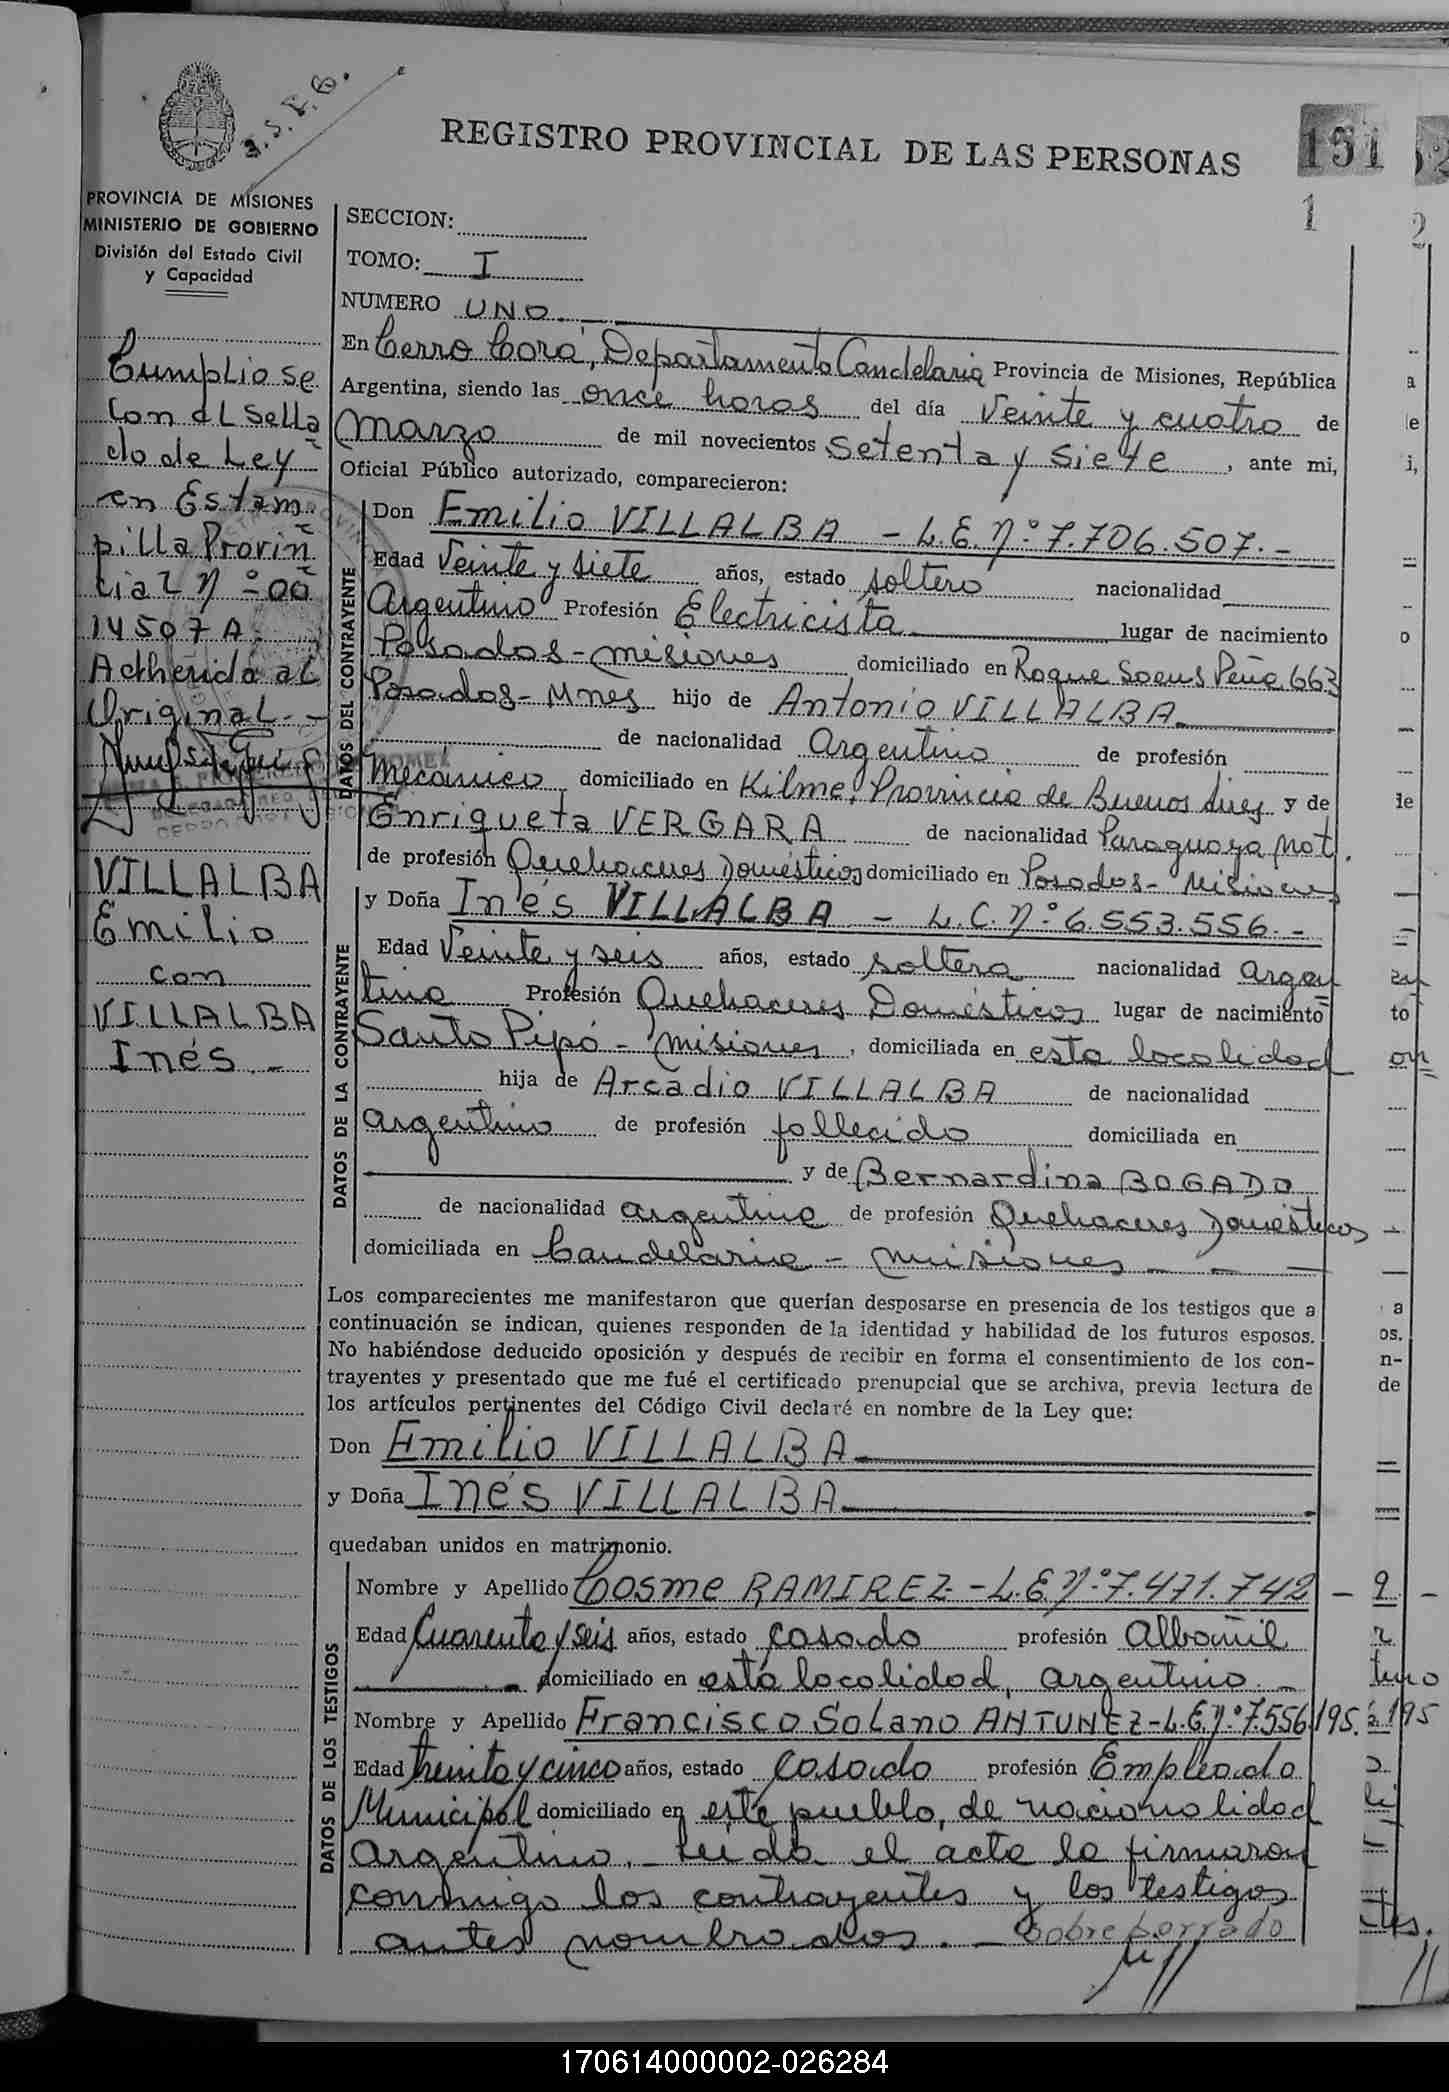 J.S.P.G.
REGISTRO PROVINCIAL DE LAS PERSONAS
191
1
PROVINCIA DE MISIONES
MINISTERIO DE GOBIERNO
División del Estado Civil
y Capacidad
Cumpliose
con el Sella
do de Ley
en Estam
pilla Provin
cial Nº 00
14507 A.
Adherida al
Original.-
VILLALBA
Emilio
con
VILLALBA
Inés.-
SECCION:
TOMO: I
NUMERO UNO.
En Cerro Corá, Departamento Candelaria Provincia de Misiones, República
Argentina, siendo las once horas del día Veinte y cuatro de
Marzo de mil novecientos setenta y siete, ante mi,
Oficial Público autorizado, comparecieron:
DATOS DEL CONTRAYENTE
Don Emilio VILLALBA - L.E.Nº 7.706.507.-
Edad Veinte y siete años, estado soltero nacionalidad
Argentino Profesión Electricista lugar de nacimiento
Posadas - Misiones domiciliado en Roque Saens Peña 663
Posadas - Mnes hijo de Antonio VILLALBA
de nacionalidad Argentino de profesión
Mecánico domiciliado en Kilme, Provincia de Buenos Aires y de
Enriqueta VERGARA de nacionalidad Paraguaya Nat.
de profesión Quehaceres Domésticos domiciliado en Posadas - Misiones
DATOS DE LA CONTRAYENTE
y Doña Inés VILLALBA - L.C.Nº 6.553.556.-
Edad Veinte y seis años, estado soltera nacionalidad argen
tina Profesión Quehaceres Domésticos lugar de nacimiento
Santo Pipó - Misiones, domiciliada en esta localidad
hija de Arcadio VILLALBA de nacionalidad
argentino de profesión fallecido domiciliada en
y de Bernardina BOGADO
de nacionalidad argentina de profesión Quehaceres Domésticos
domiciliada en Candelaria - Misiones - - -
Los comparecientes me manifestaron que querían desposarse en presencia de los testigos que a
continuación se indican, quienes responden de la identidad y habilidad de los futuros esposos.
No habiéndose deducido oposición y después de recibir en forma el consentimiento de los con-
trayentes y presentado que me fué el certificado prenupcial que se archiva, previa lectura de
los artículos pertinentes del Código Civil declaré en nombre de la Ley que:
Don Emilio VILLALBA
y Doña Inés VILLALBA
quedaban unidos en matrimonio.
DATOS DE LOS TESTIGOS
Nombre y Apellido Cosme RAMIREZ - L.E.Nº 7.471.742 -
Edad Cuarenta y seis años, estado casado profesión Albañil
domiciliado en esta localidad, argentino.-
Nombre y Apellido Francisco Solano ANTUNEZ - L.E.Nº 7.556.195.
Edad treinta y cinco años, estado casado profesión Empleado
Municipal domiciliado en este pueblo, de nacionalidad
argentino. Leida el acta la firmaron
conmigo los contrayentes y los testigos
antes nombrados. - Sobreborrado
170614000002-026284